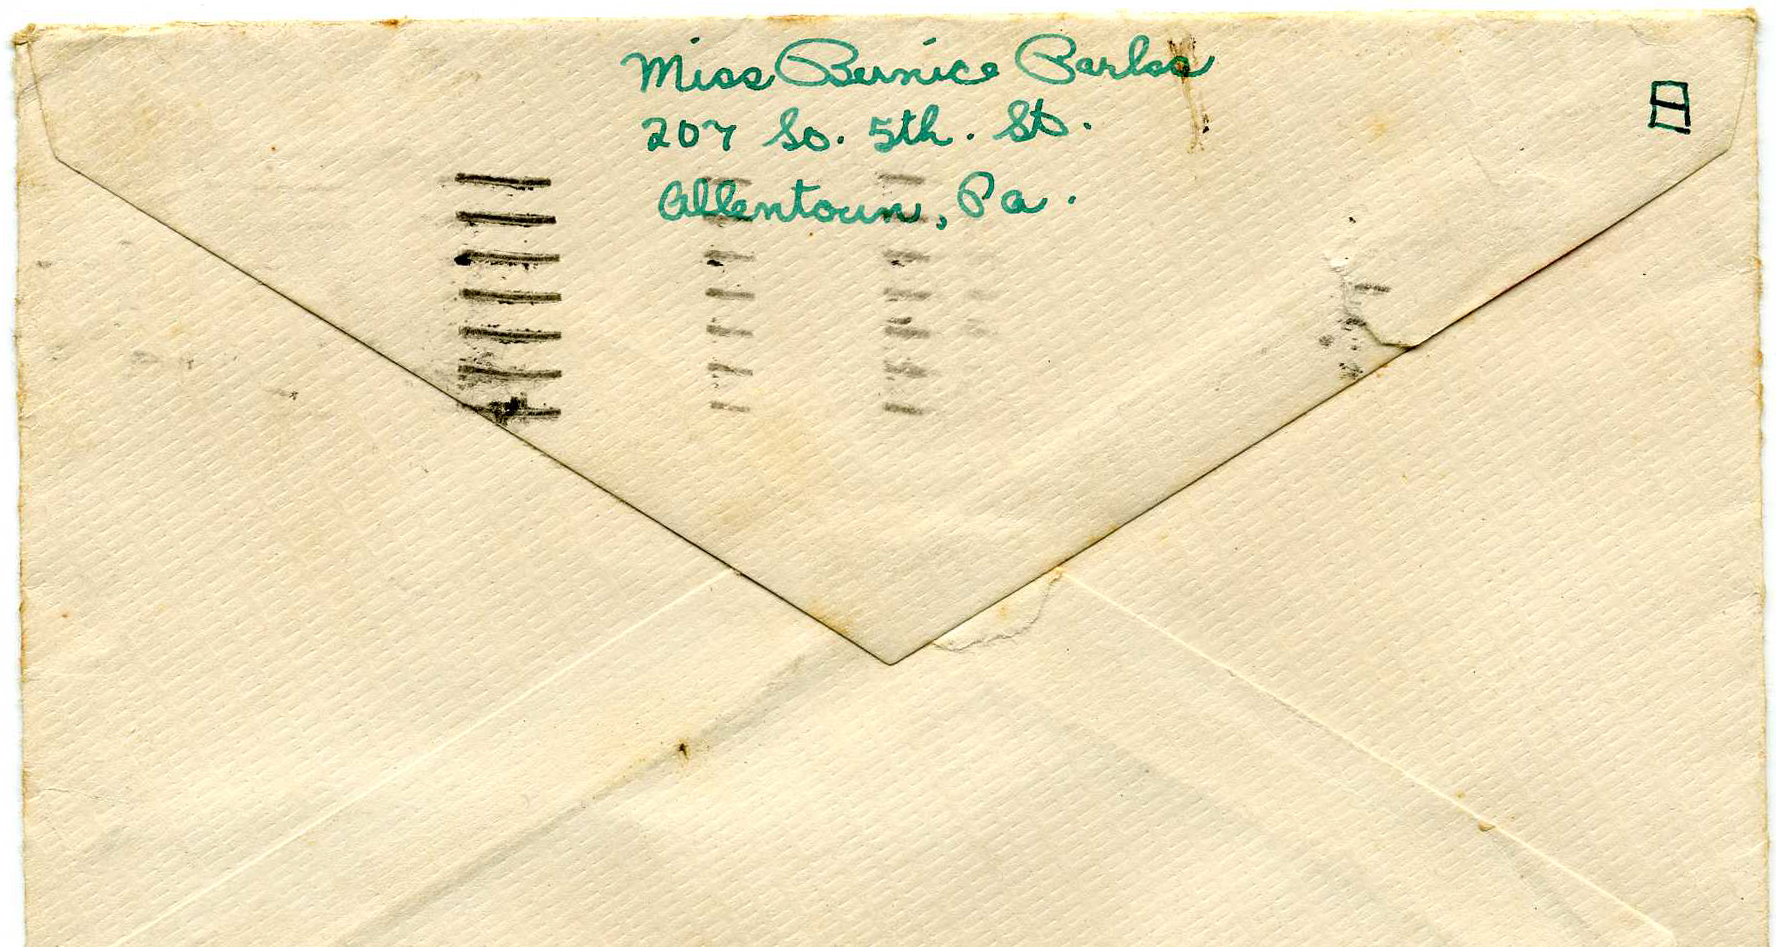 Miss Bernice
207 So. 5th. St.
Allentown, Pa.